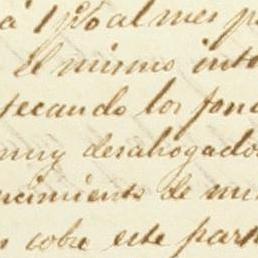 á 1 p% al mes p
El mismo inte
tecando los fond
muy desahogados
ncimiento de mi
s cobre este part